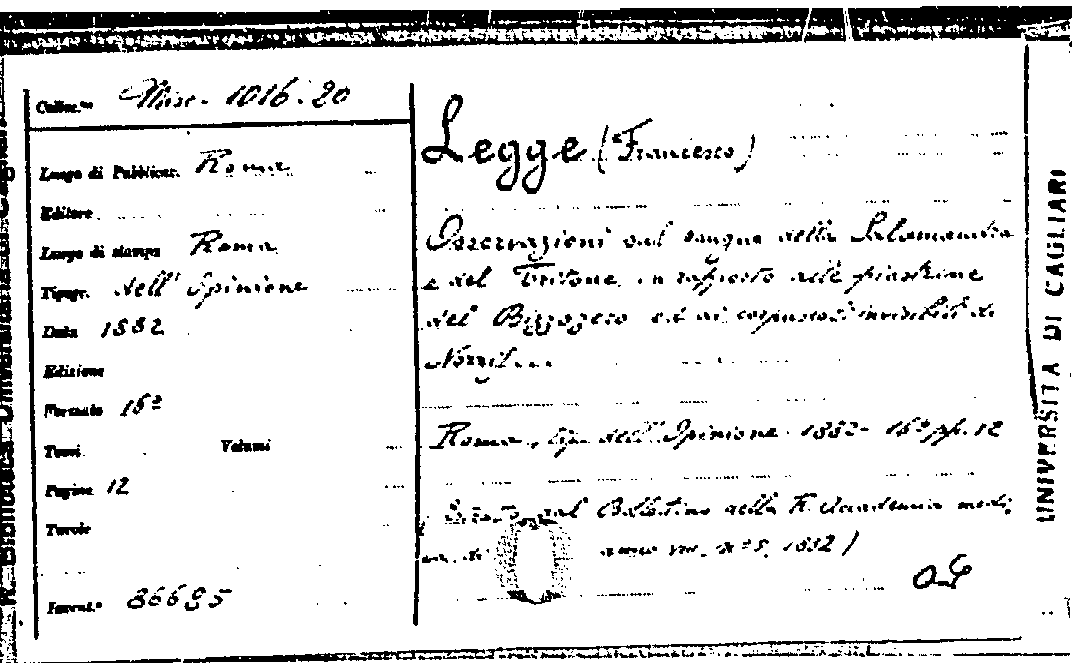 Colloc.ne Misc. 1016.20
Luogo di Pubblicaz. Roma
Editore
Luogo di stampa Roma
Tipogr. dell'Opinione
Data 1882
Edizione
Formato 16º
Tomi Volumi
Pagine 12
Tavole
Invent.º 86695
Legge (Francesco)
Osservazioni sul sangue della Salamandra
e del Tritone in rapporto alle piastrine
del Bizzozero ed ai corpuscoli invisibili di
Roma, tip. dell'Opinione 1882 - 16º pp. 12
dal Bollettino della R. Accademia medi
di anno VIII, nº 5, 1882)
R. Biblioteca Universitaria di Cagliari
UNIVERSITÀ DI CAGLIARI